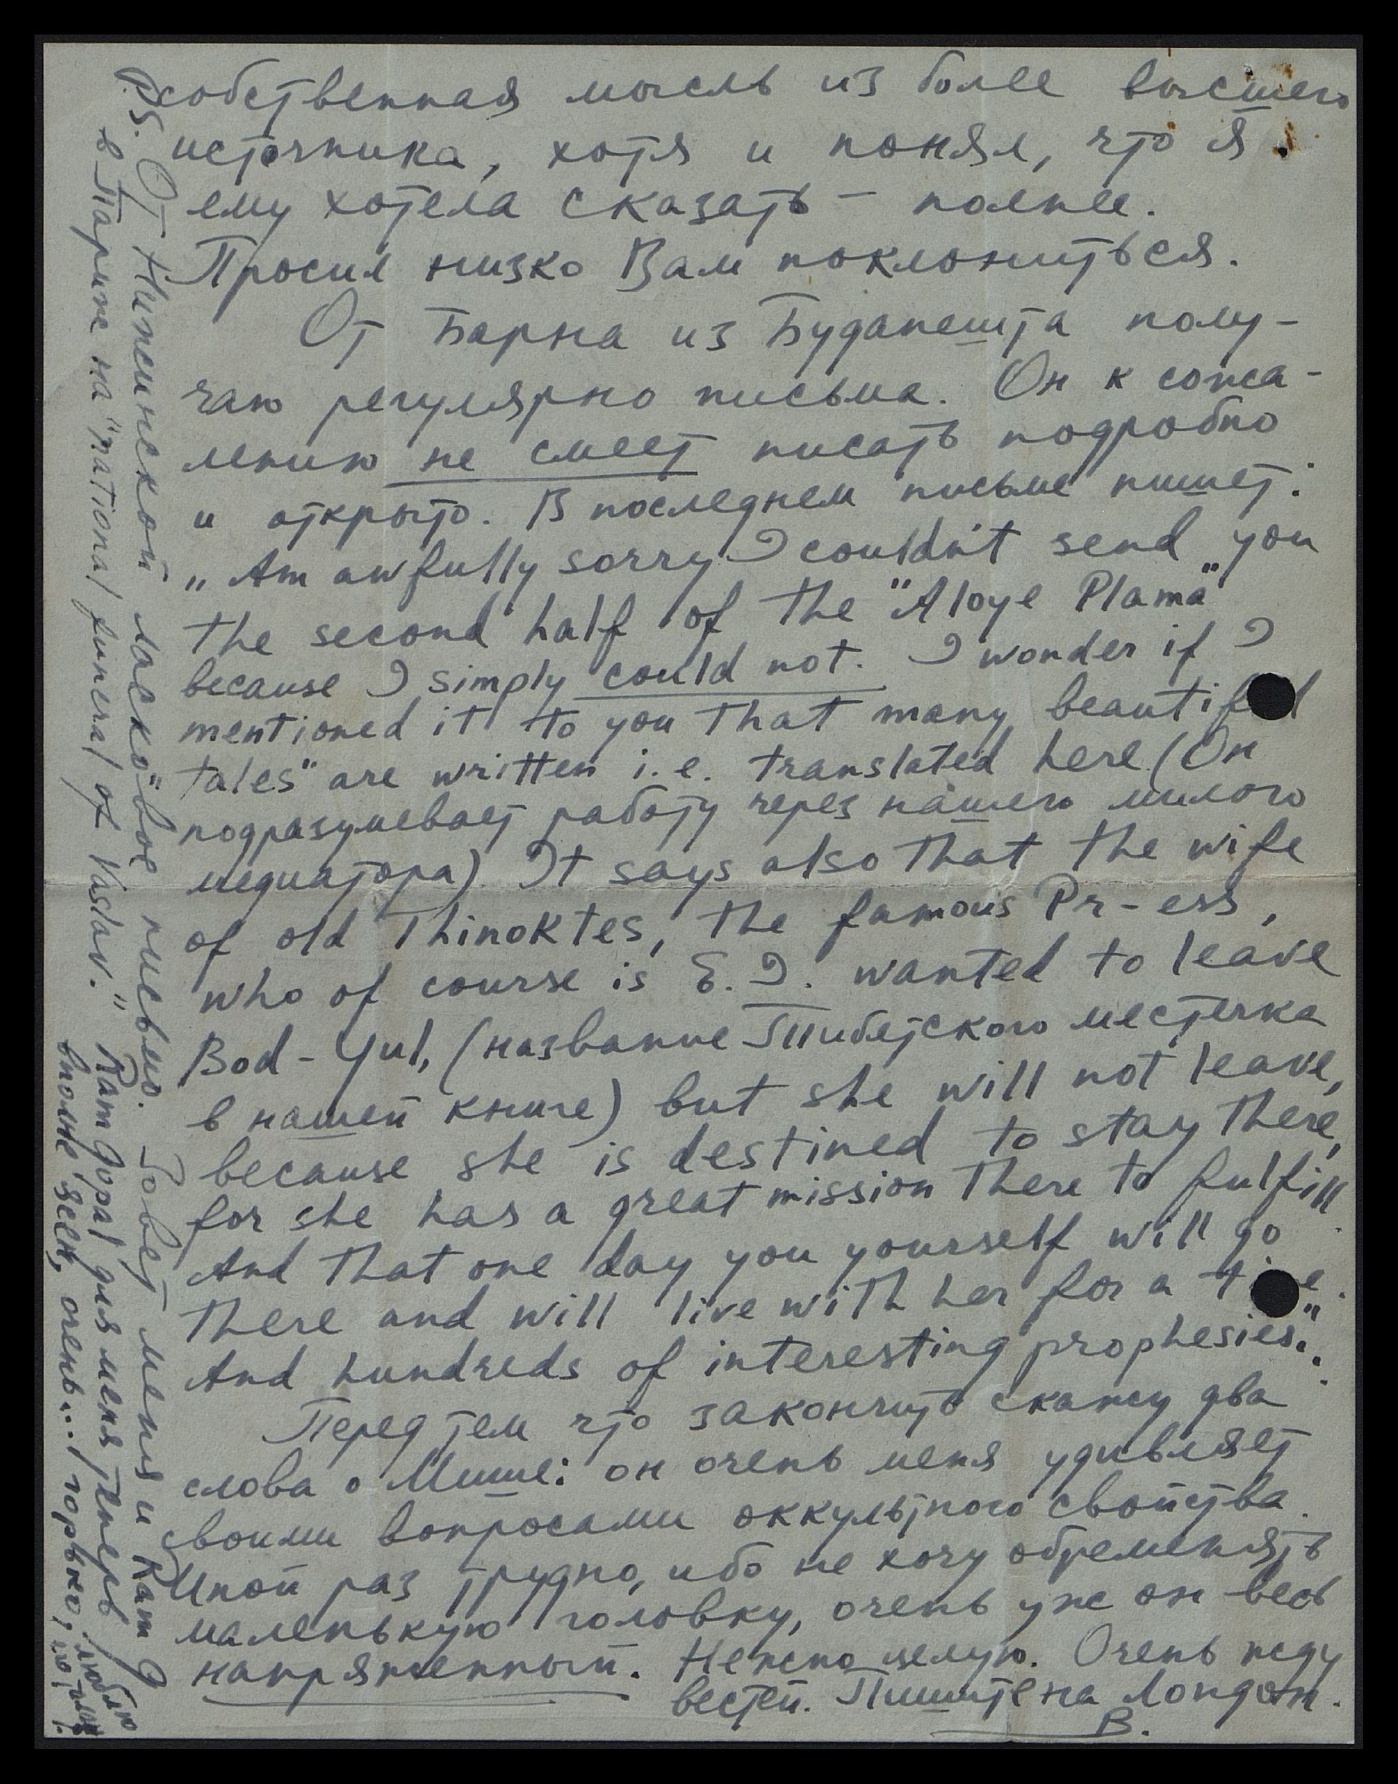 собственная мысль из более высшего
источника, хотя и понял, что я
ему хотела сказать – полнее.
Просил низко Вам поклониться.
От Барна из Будапешта полу-
чаю регулярно письма. Он к сожа-
лению не смеет писать подробно
и открыто. В последнем письме пишет:
„Am awfully sorry I couldn't send you
the second half of the "Aloye Plama"
because I simply could not. I wonder if I
mentioned it to you that many beautiful
tales" are written i.e. translated here (Он
подразумевает работу через нашего милого
медиатора). It says also that the wife
of old Thinoktes, the famous Pr-ess,
who of course is E. I. wanted to leave
Bod-Yul, (название Тибетского местечка
в нашей книге) but she will not leave,
because she is destined to stay there,
for she has a great mission there to fulfill.
And that one day you yourself will go
there and will live with her for a time.
And hundreds of interesting prophesies."
Перед тем что закончить скажу два
слова о Мише: он очень меня удивляет
своими вопросами оккультного свойства.
Иной раз трудно, ибо не хочу обременять
маленькую головку, очень уже он весь
напряженный. Нежно целую. Очень жду
вестей. Пишите на Лондон.
В.
P.S. От Нижинской ласко"вое письмо. Зовет меня и Ram G
в Париж на "national funeral of Vaslav."
Ram Gopal для меня теперь люблю
вполне ясен, очень... горько,